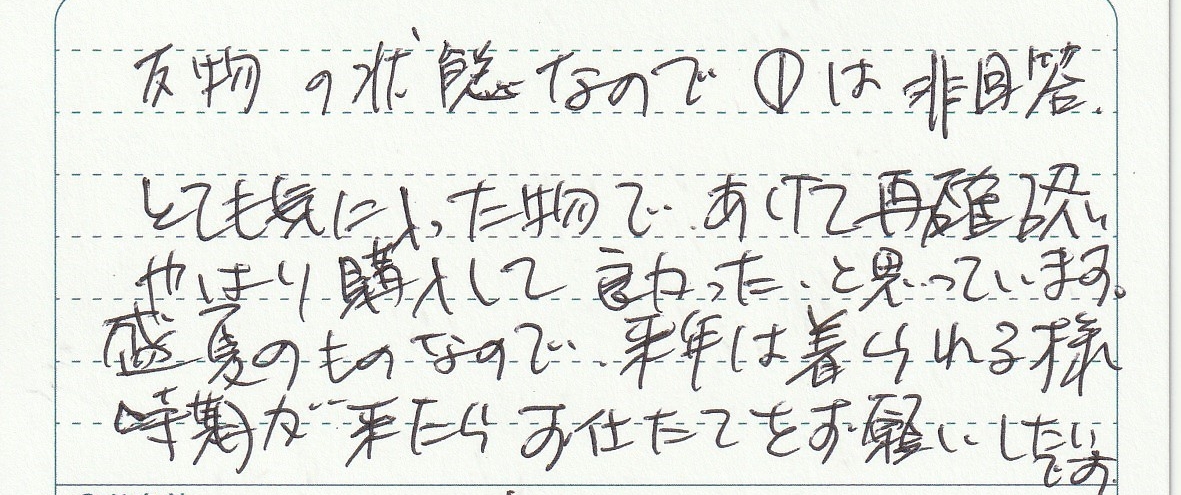 反物の状態なので①は非回答.
とても気に入った物で、あけて再確認い
やはり購入して良かった、と思っています。
盛夏のものなので、来年は着られる様
時期が来たらお仕たてをお願いしたい
です